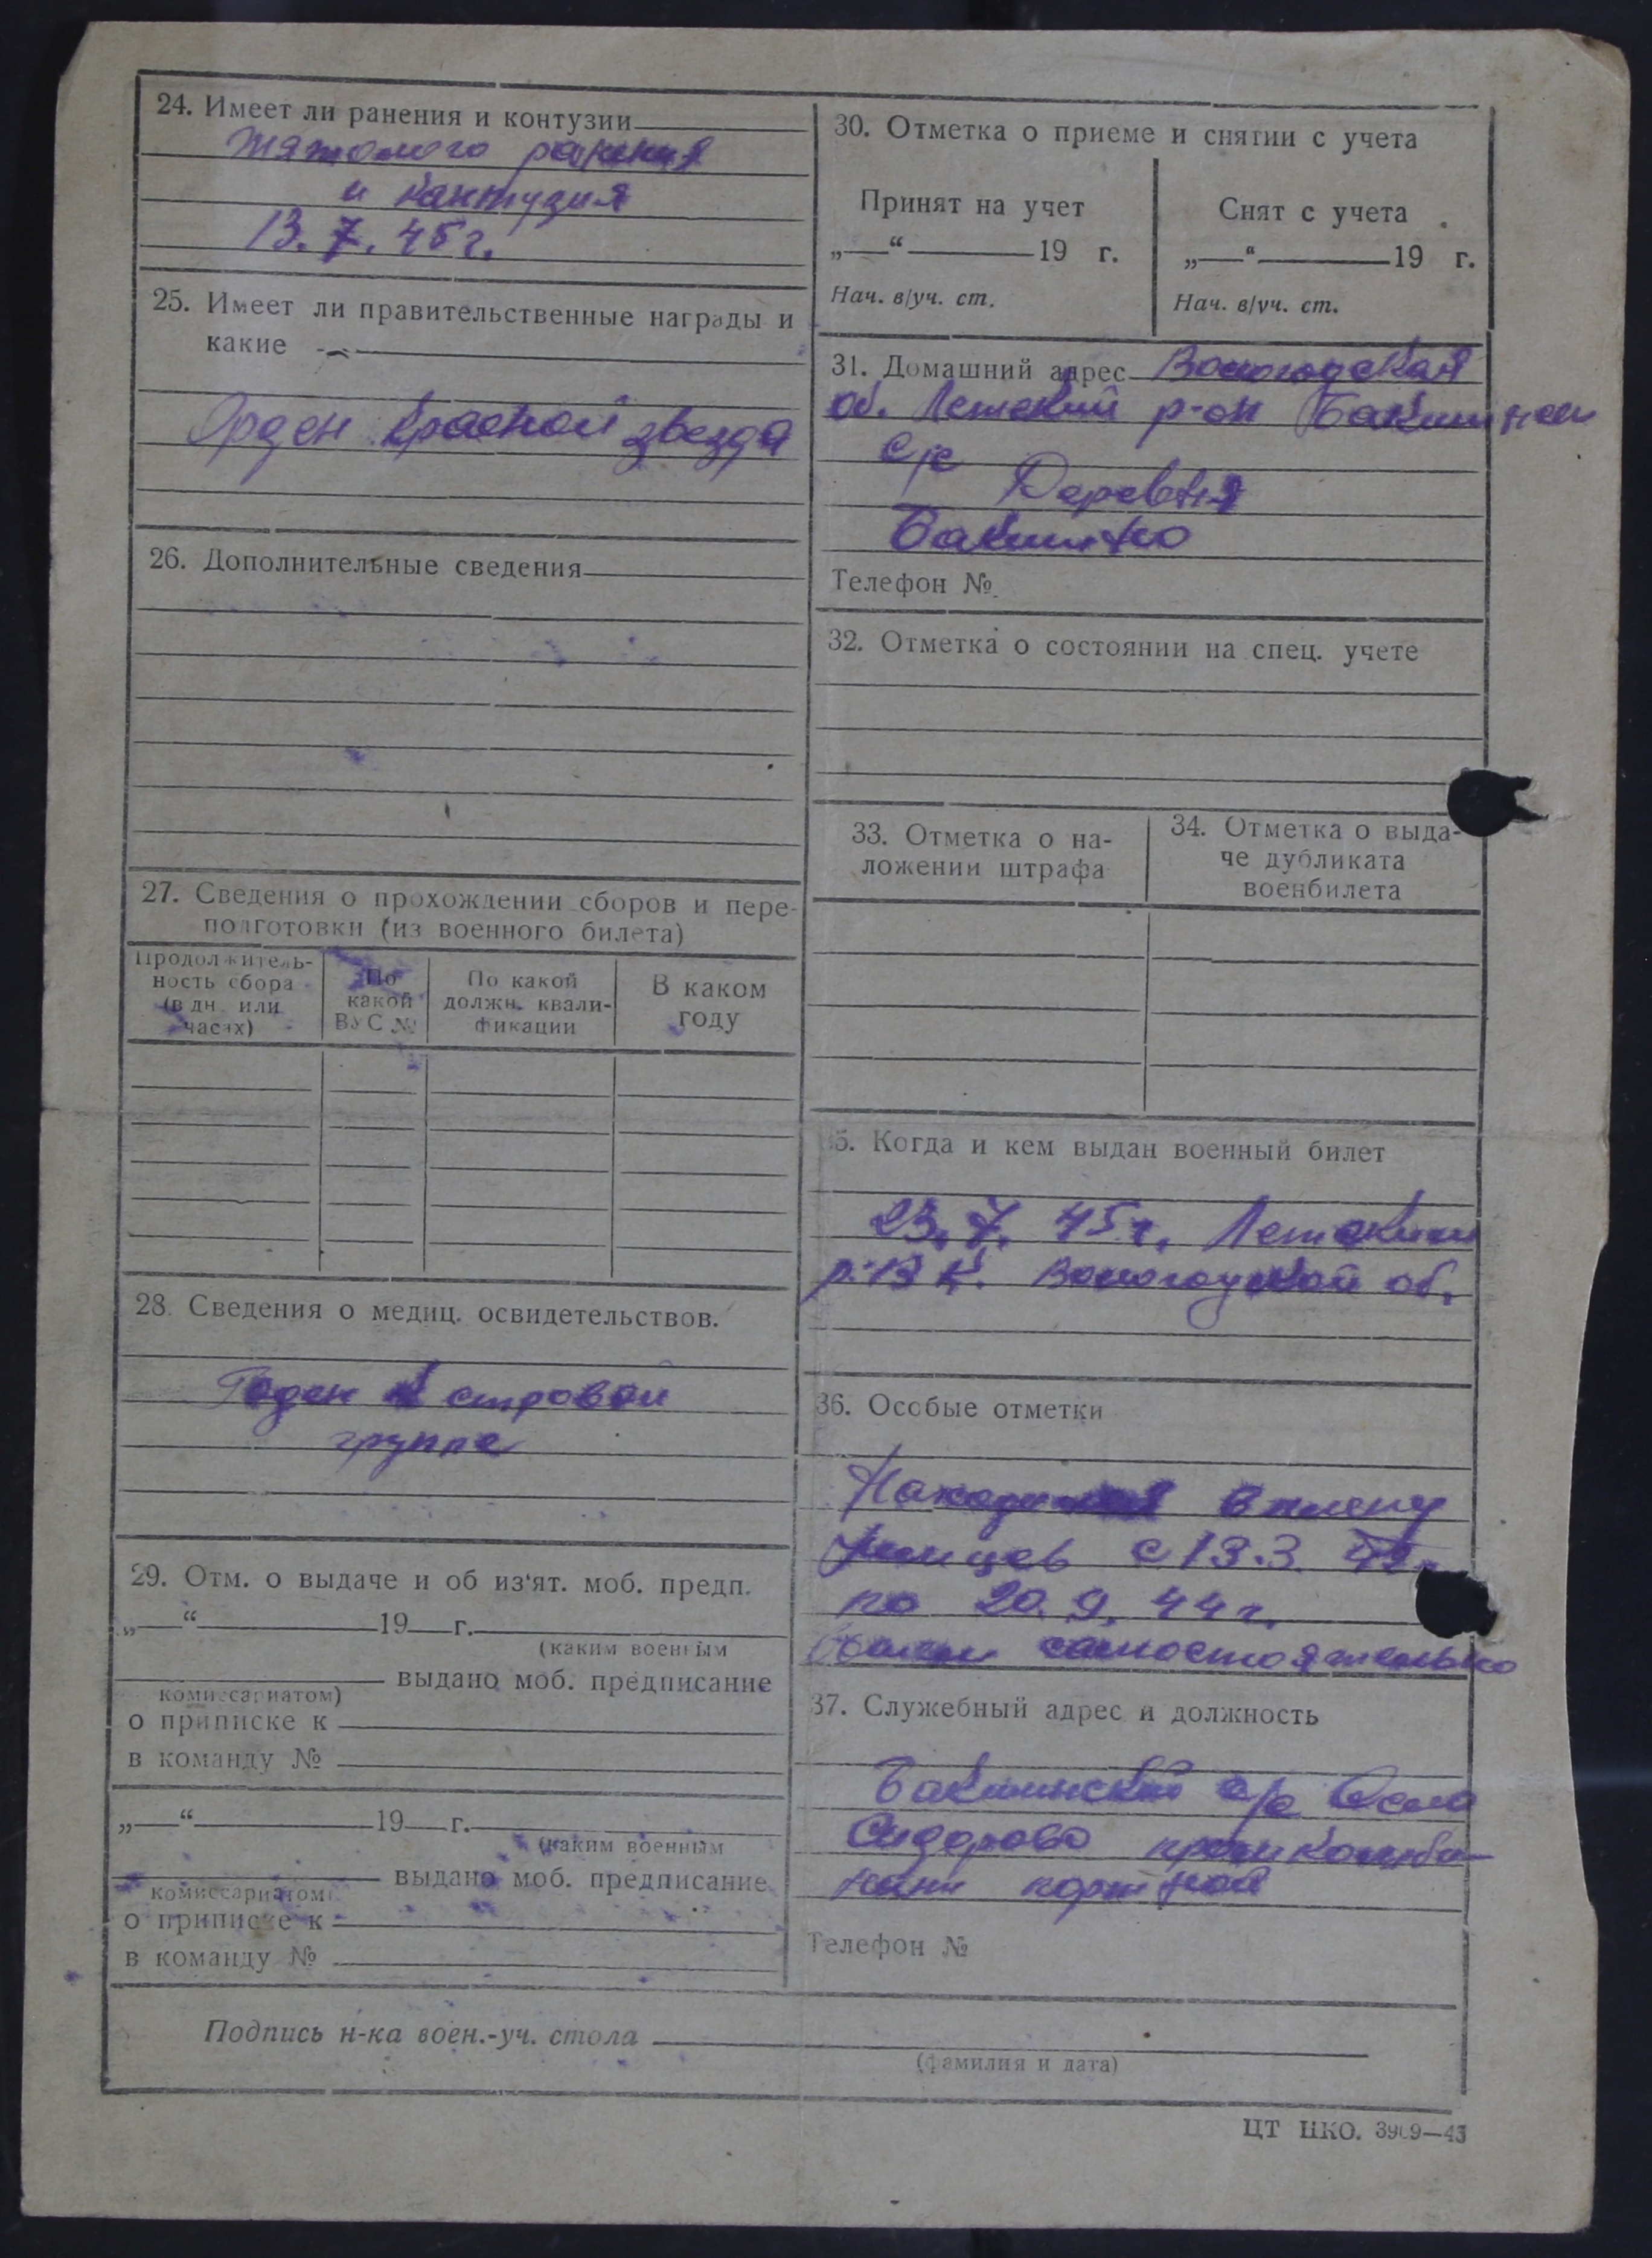 24. Имеет ли ранения и контузии
Тяжолого ранения
и кантузия
13.7.45 г.
25. Имеет ли правительственные награды и
какие
Орден Красной звезда
26. Дополнительные сведения
27. Сведения о прохождении сборов и пере-
подготовки (из военного билета)
Продолжитель-
ность сбора
(в дн. или
часах)
По
какой
ВУС №
По какой
должн. квали-
фикации
В каком
году
28. Сведения о медиц. освидетельствов.
Годен к строевой
группе
29. Отм. о выдаче и об из'ят. моб. предп.
„—“ 19 г.
(каким военным
комиссариатом) выдано моб. предписание
о приписке к
в команду №
„—“ 19 г.
(каким военным
комиссариатом) выдано моб. предписание
о приписке к
в команду №
30. Отметка о приеме и снятии с учета
Принят на учет
„—“ 19 г.
Нач. в/уч. ст.
Снят с учета
„—“ 19 г.
Нач. в/уч. ст.
31. Домашний адрес Вологодская
об. Летский р-он
с/с Деревня
Бакшино
Телефон №
32. Отметка о состоянии на спец. учете
33. Отметка о на-
ложении штрафа
34. Отметка о выда-
че дубликата
военбилета
35. Когда и кем выдан военный билет
23.7.45 г. Летским
р.в.к. Вологодской об.
36. Особые отметки
Находился в плену
немцев с 13.3. 42 г.
по 20.9.44 г.
самостоятельно
37. Служебный адрес и должность
Бакшинский с/с Село
Сидорово промкомби-
нат портной
Телефон №
Подпись н-ка воен.-уч. стола
(фамилия и дата)
ЦТ НКО. 3909—43